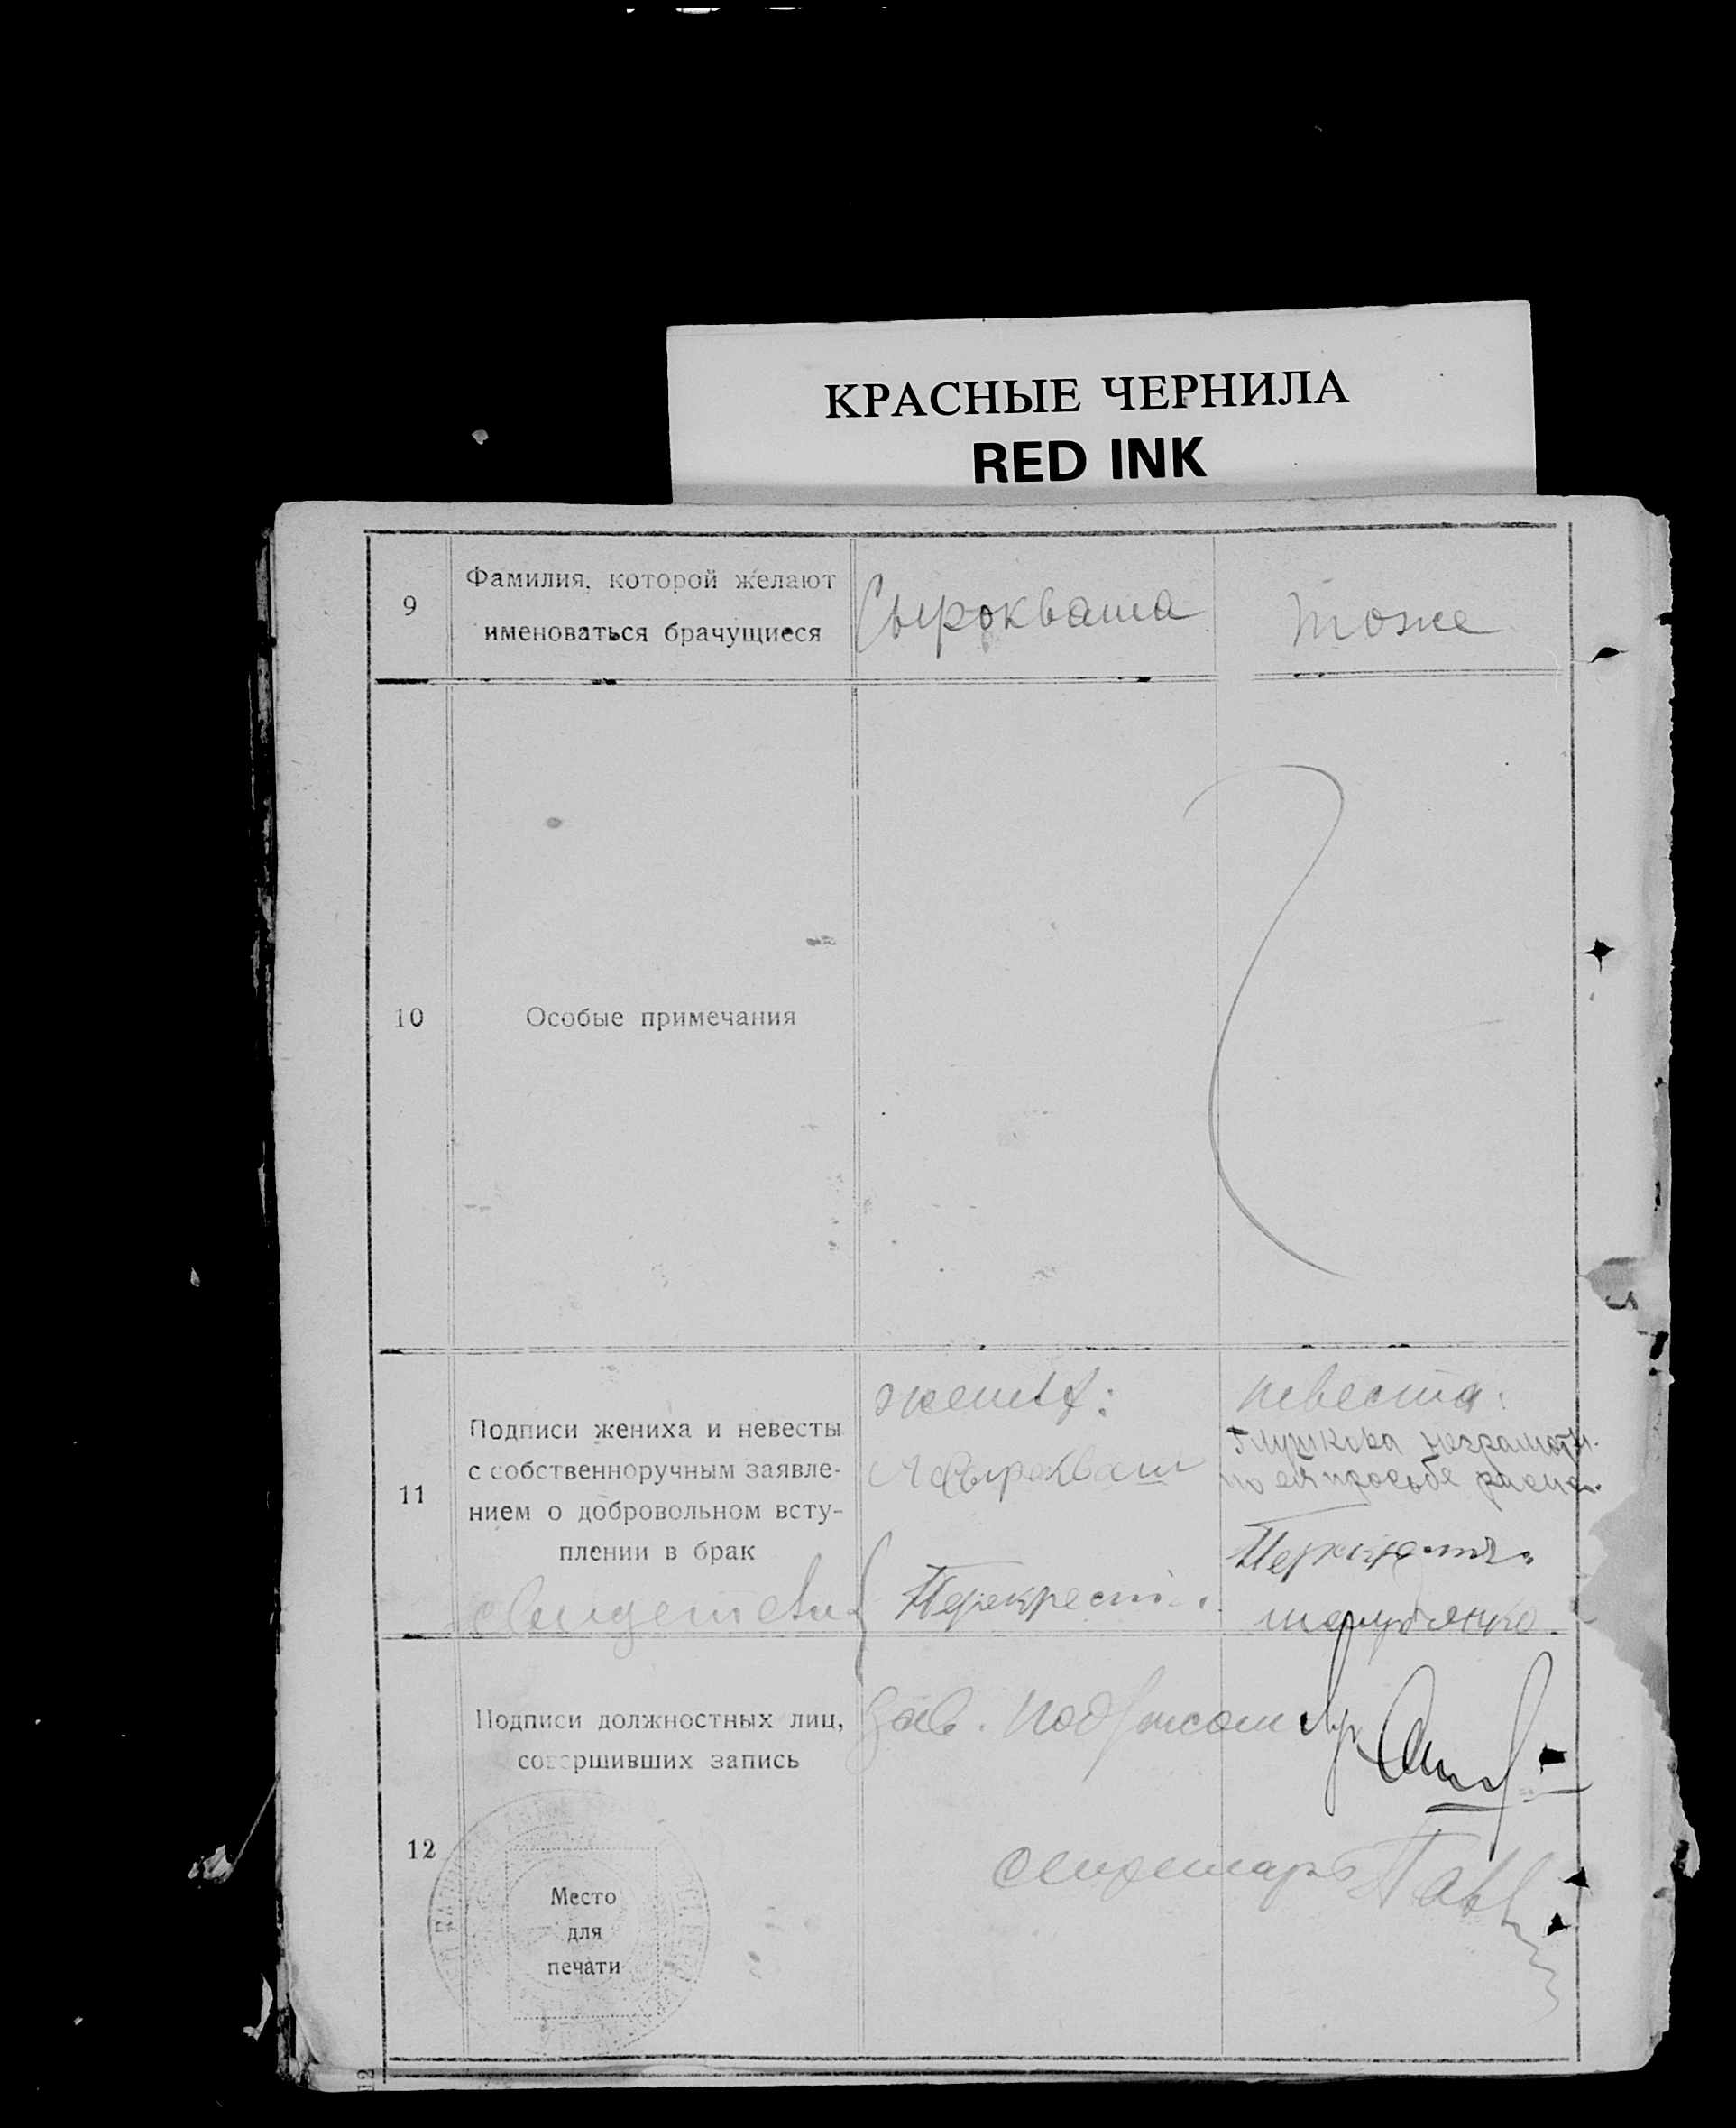 КРАСНЫЕ ЧЕРНИЛА
RED INK
9
Фамилия, которой желают
именоваться брачущиеся
Сырокваша
тоже
10
Особые примечания
11
Подписи жениха и невесты
с собственноручным заявле-
нием о добровольном всту-
плении в брак
свидетели
жених:
Сырокваш
Перекрест
невеста:
Глушкова неграмотн.
по ея просьбе распис.
12
Подписи должностных лиц,
совершивших запись
Зав. подотделом
секретарь
Место
для
печати
12